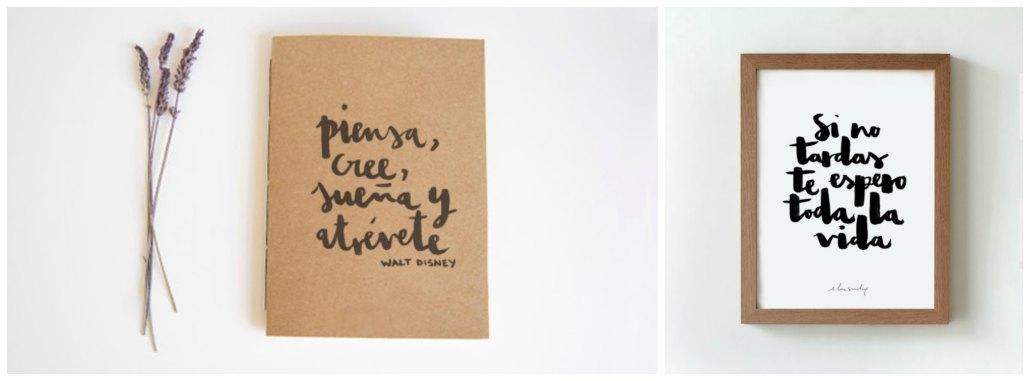 piensa,
cree,
sueña y
atrévete
WALT DISNEY
Si no
tardas
te espero
toda la
vida